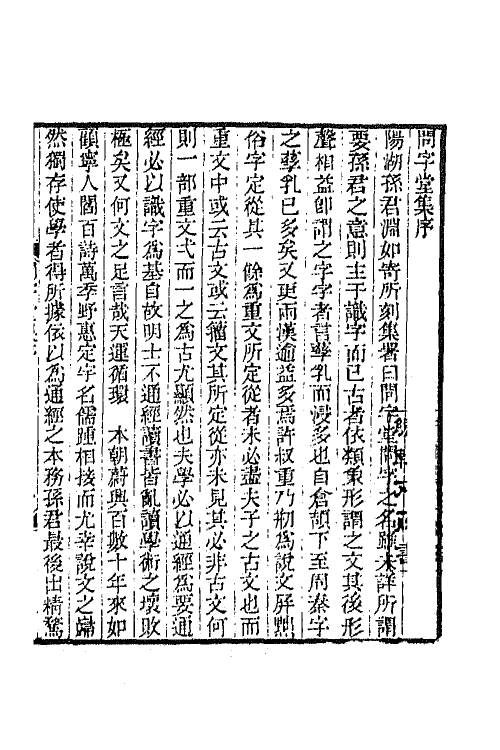 問字堂集序
陽湖孫君淵如寄所刻集署曰問字堂問字之名雖未詳所謂
要孫君之意則主于識字而已古者依類象形謂之文其後形
聲相益卽謂之字字者言孳乳而𣹢多也自倉頡下至周秦字
之孳乳已多矣又更兩漢逾益多焉許叔重乃刱爲說文屏黜
俗字定從其一餘爲重文所定從者未必盡夫子之古文也而
重文中或云古文或云籀文其所定從亦未見其必非古文何
則一部重文弌而一之爲古尤顯然也夫學必以通經爲要通
經必以識字爲基自故明士不通經讀書皆亂讀學術之壞敗
極矣又何文之足言哉天運循環　本朝蔚興百數十年來如
顧寧人閻百詩萬季野惠定宇名儒踵相接而尤幸說文之歸
然獨存使學者得所據依以爲通經之本務孫君最後出精騖